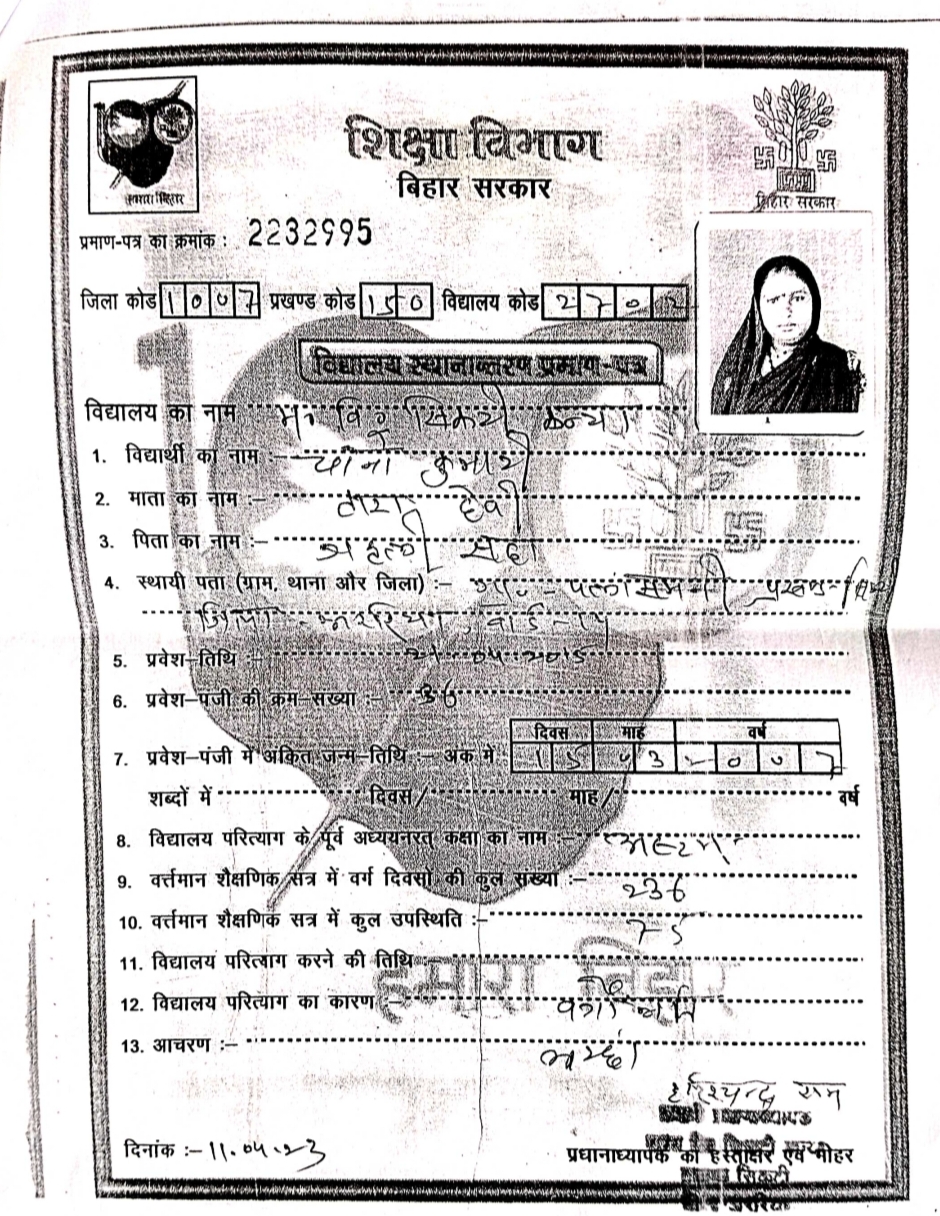 शिक्षा विभाग
बिहार सरकार
बिहार सरकार
प्रमाण-पत्र का क्रमांक : 2232995
जिला कोड 1007 प्रखण्ड कोड 150 विद्यालय कोड 2702
विद्यालय स्थानान्तरण प्रमाण-पत्र
विद्यालय का नाम म० वि० सिकटी कन्या
1. विद्यार्थी का नाम :– कुमारी
2. माता का नाम :– तारा देवी
3. पिता का नाम :–
4. स्थायी पता (ग्राम, थाना और जिला) :–
जिला - अररिया, वार्ड-
5. प्रवेश–तिथि :– 21-04-2015
6. प्रवेश–पंजी की क्रम–संख्या :– 36
दिवस माह वर्ष
7. प्रवेश–पंजी में अंकित जन्म–तिथि :– अंक में 15 03 2007
शब्दों में दिवस/ माह/ वर्ष
8. विद्यालय परित्याग के पूर्व अध्ययनरत् कक्षा का नाम :– अष्टम
9. वर्त्तमान शैक्षणिक सत्र में वर्ग दिवसों की कुल संख्या :– 236
10. वर्त्तमान शैक्षणिक सत्र में कुल उपस्थिति :– 75
11. विद्यालय परित्याग करने की तिथि :–
हमारा बिहार
12. विद्यालय परित्याग का कारण :– वर्गोन्नति
13. आचरण :– अच्छा
हरिश्चन्द्र राम
दिनांक :– 11.04.23
प्रधानाध्यापक का हस्ताक्षर एवं मोहर
सिकटी